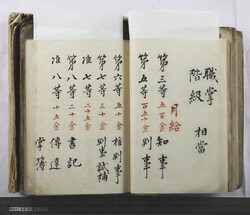 職掌
階級 相當
月給
第三等 五百金 知事
第五等 百五十金 判事
第六等 五十金 権判事
准七等 三十金 判事試補
准八等 二十五金
第八等 二十金 書記
准八等 十五金 傳達
掌簿